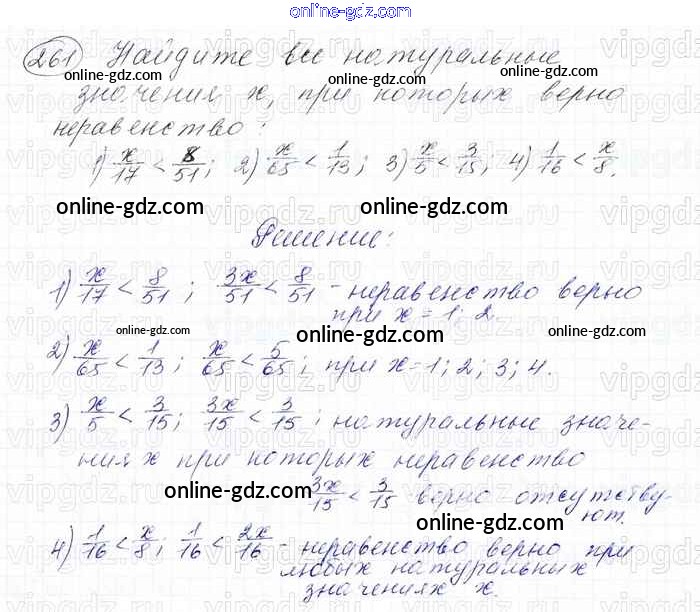 online-gdz.com
261 Найдите все натуральные
значения x, при которых верно
неравенство:
1) x/17 < 8/51; 2) x/65 < 1/13; 3) x/5 < 3/15; 4) 1/16 < x/8.
online-gdz.com online-gdz.com
Решение:
1) x/17 < 8/51; 3x/51 < 8/51 - неравенство верно
при x = 1; 2
online-gdz.com online-gdz.com
2) x/65 < 1/13; x/65 < 5/65; при x = 1; 2; 3; 4.
online-gdz.com
3) x/5 < 3/15; 3x/15 < 3/15; натуральные значе-
ния x при которых неравенство
3x/15 < 3/15 верно отсутству-
ют.
online-gdz.com online-gdz.com
4) 1/16 < x/8; 1/16 < 2x/16 - неравенство верно при
любых натуральных
значениях x.
online-gdz.com